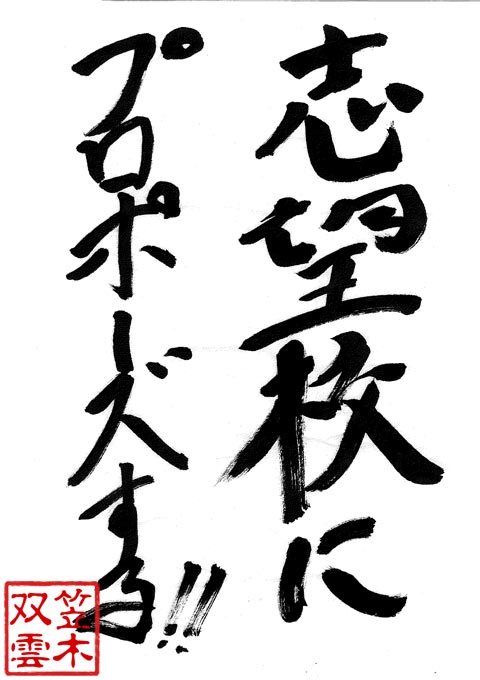 志望校に
プロポーズする!!
笠木
双雲